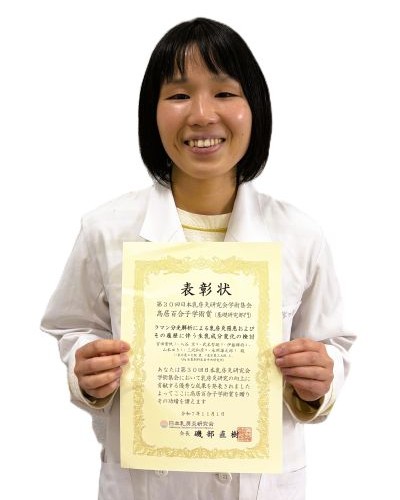 表彰状
第30回日本乳房炎研究会学術集会
高居百合子学術賞(基礎研究部門)
ラマン分光解析による乳房炎罹患および
その履歴に伴う生乳成分変化の検討
あなたは第30回日本乳房炎研究会
学術集会において乳房炎研究の向上に
貢献する優秀な成果を発表されました
よってここに高居百合子学術賞を贈り
その功績を讃えます
令和7年11月1日
日本乳房炎研究会
会長 磯部直樹